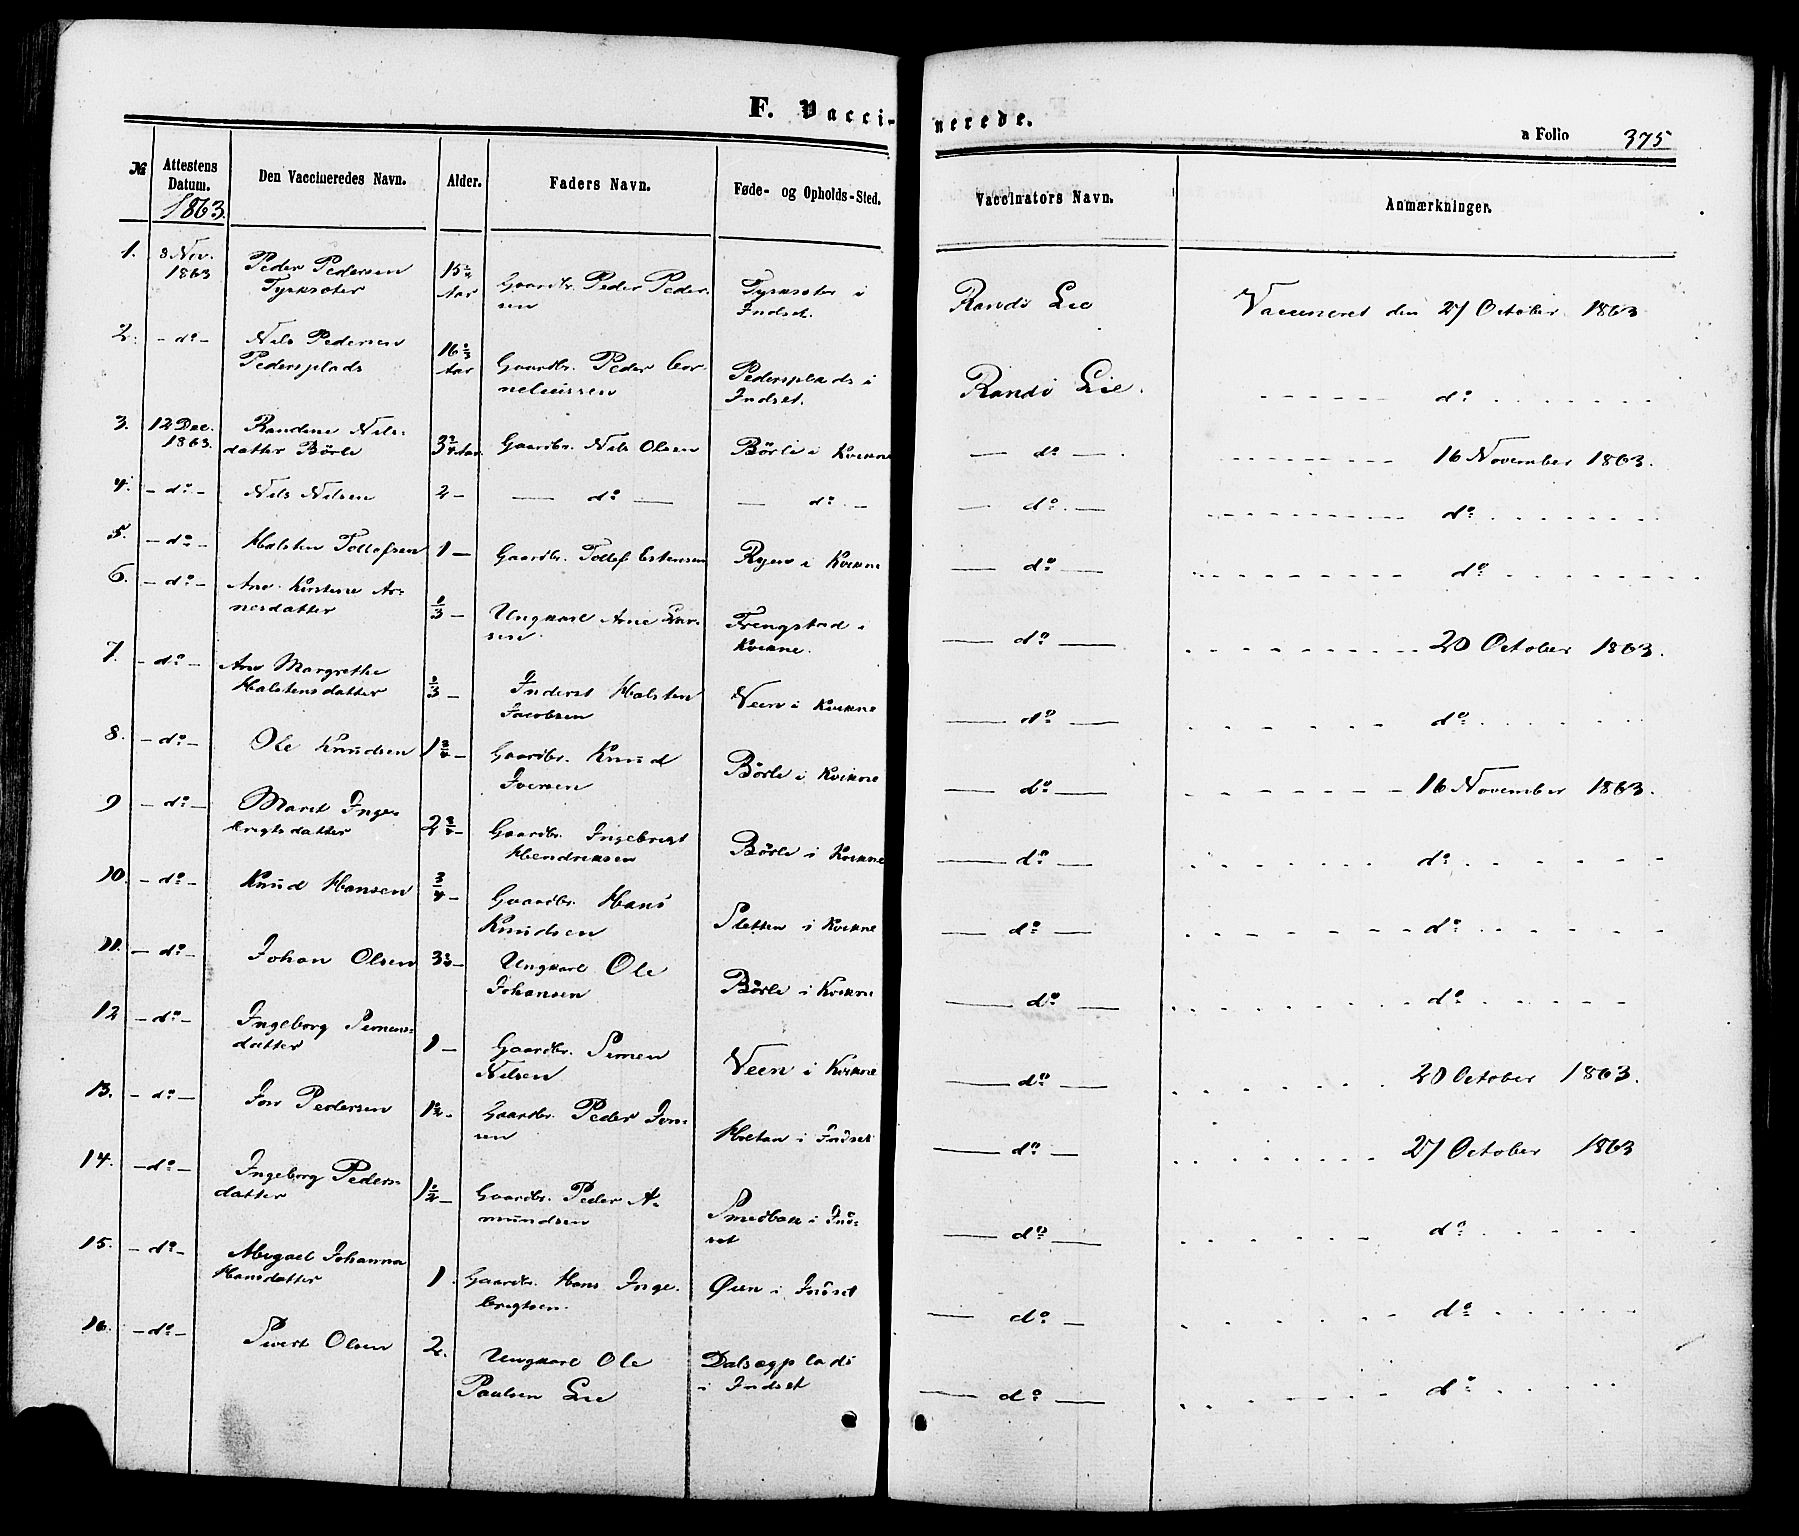 F. Vaccinerede.
a Folio 375
№ Attestens Datum. Den Vaccineredes Navn. Alder. Faders Navn. Føde- og Opholds-Sted. Vaccinators Navn. Anmærkninger.
1863.
1. 8 Nov. 1863 Peder Pedersen Tyrksæter 15 Aar Gaardbr. Peder Pedersen Tyrksæter i Indset. Randi Lie Vaccineret den 27 October 1863
2. - do - Nils Pedersen Pedersplads 16 Aar Gaardbr. Peder Corneliussen Pedersplads i Indset. Randi Lie. do
3. 12 Dec. 1863. Randine Nilsdatter Börle 3 Aar Gaardbr. Nils Olsen Börle i Kvikne - do - 16 November 1863.
4. - do - Nils Nilsen 2 - - do - - do - - do - do
5. - do - Halsten Tollefsen 1 - Gaardbr. Tollef Estensen Ryen i Kvikne - do - do
6. - do - Ane Kirstine Arnesdatter 1/3 - Ungkarl Arne Larsen Frengstad i Kvikne. - do - 20 October 1863.
7. - do - Ane Margrethe Halstensdatter 1/3 - Inderst Halsten Jacobsen Veen i Kvikne - do - do
8. - do - Ole Knudsen 1 - Gaardbr. Knud Iversen Börle i Kvikne - do - 16 November 1863.
9 - do - Marit Ingebrigtsdatter 2 - Gaardbr. Ingebrigt Hendriksen Börle i Kvikne - do - do
10. - do - Knud Hansen 3/4 - Gaardbr. Hans Knudsen Sletten i Kvikne - do - do
11. - do - Johan Olsen 3 - Ungkarl Ole Johansen Börle i Kvikne - do - do
12 - do - Ingeborg Simensdatter 1 - Gaardbr. Simen Nilsen Veen i Kvikne - do - 20 October 1863.
13. - do - Jon Pedersen 1½ - Gaardbr. Peder Jonsen Holtan i Indset - do - 27 October 1863
14. - do - Ingeborg Pedersdatter 1½ - Gaardbr. Peder Amundsen Smedbak i Indset - do - do
15. - do - Abigael Johanna Hansdatter 1. Gaardbr. Hans Ingebrigtsen. Øien i Indset - do - do
16. - do - Sivert Olsen 2. Ungkarl Ole Paulsen Lie Dalsægplads i Indset - do - do